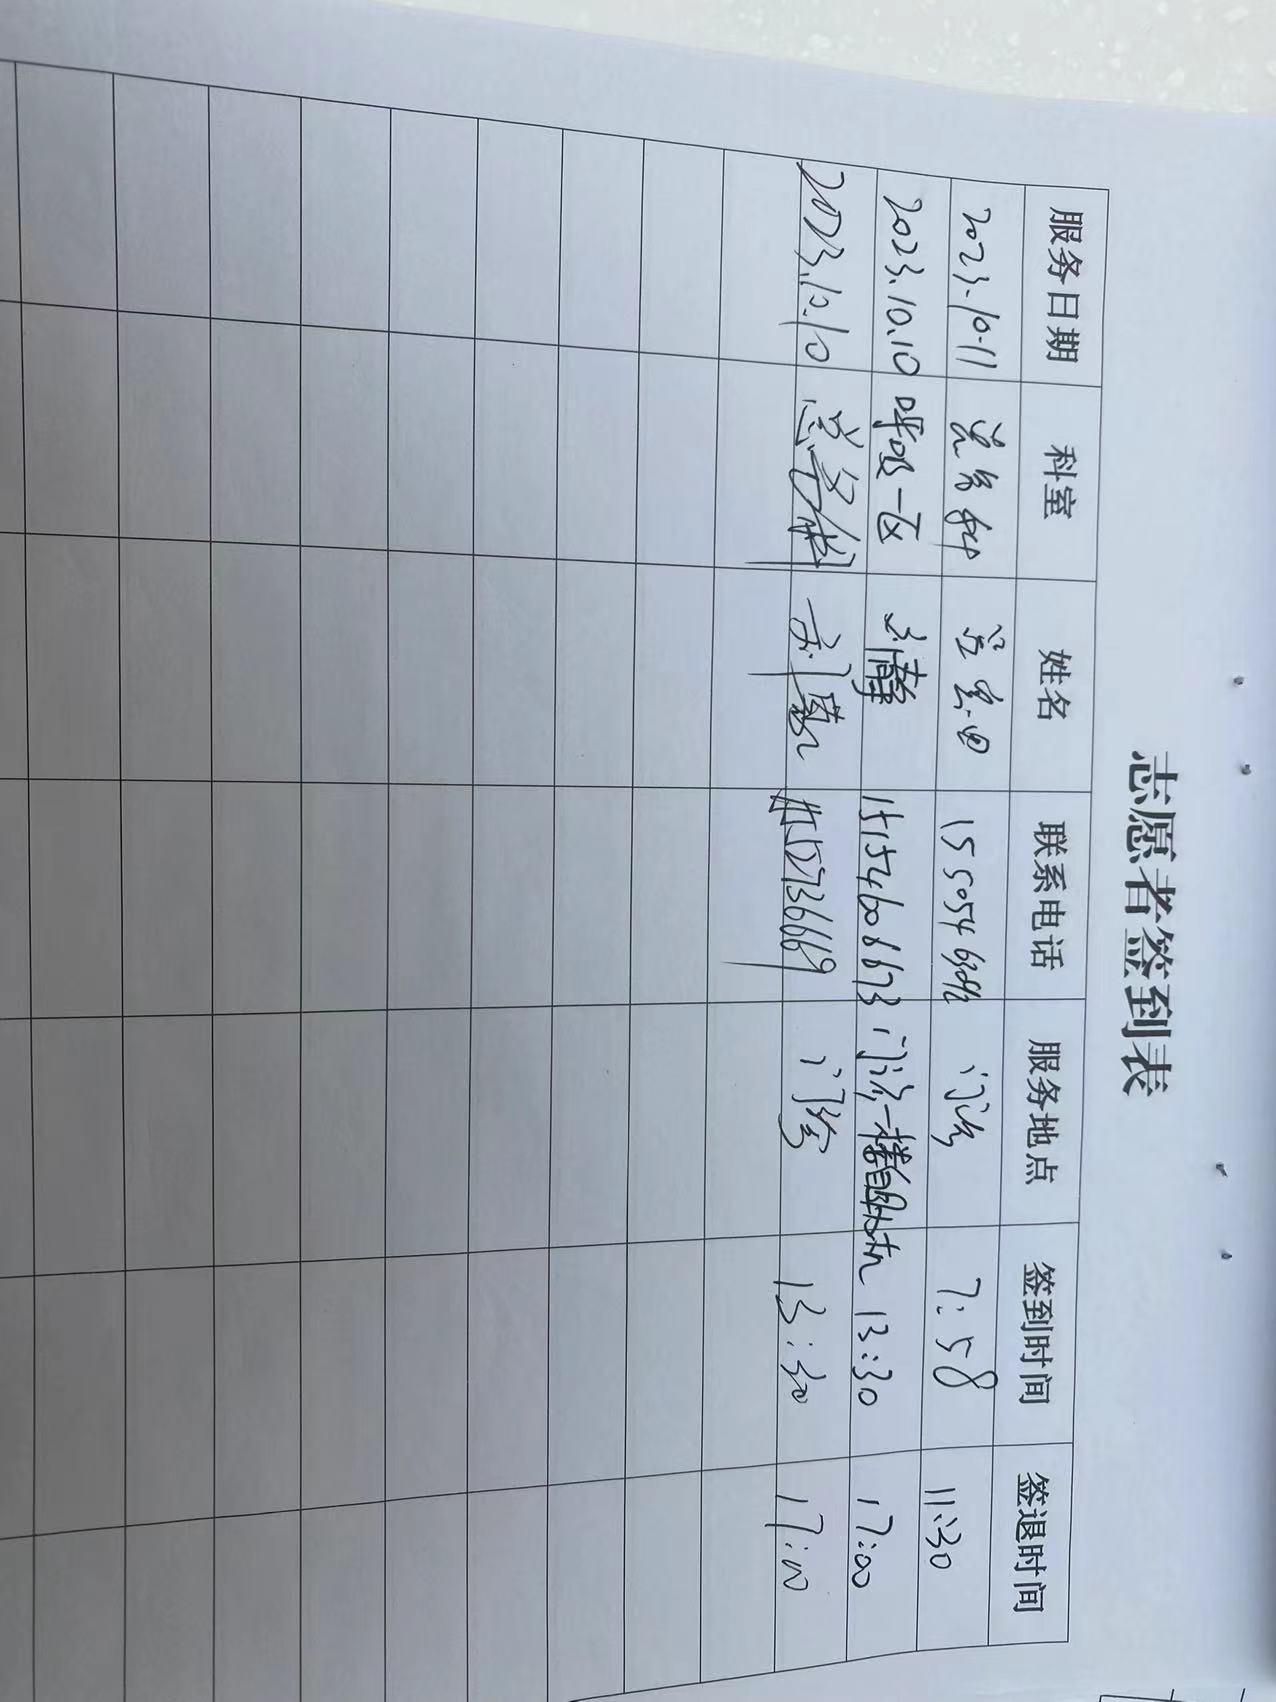 志愿者签到表
服务日期 科室 姓名 联系电话 服务地点 签到时间 签退时间
2023.10.11 总务科 门诊 7:58 11:30
2023.10.10 呼吸一区 静 15154608673 门诊一楼自助机 13:30 17:00
2023.10.10 总务科 刘 门诊 13:30 17:00